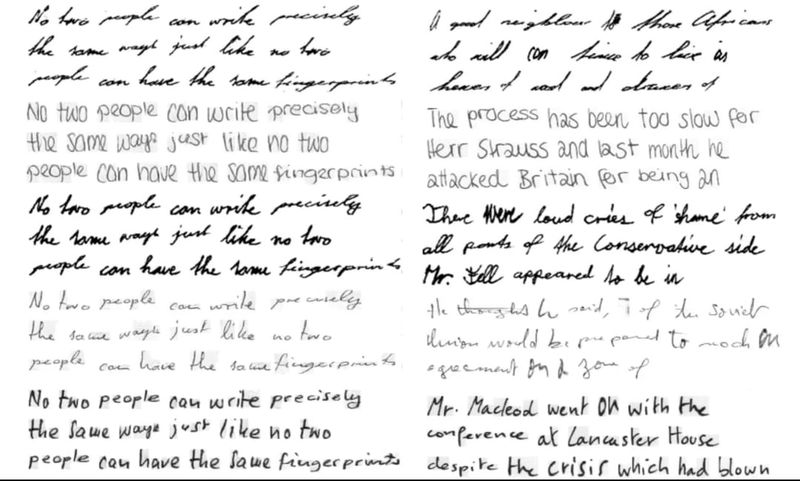 No two people can write precisely
the same ways just like no two
people can have the same fingerprints
No two people can write precisely
the same ways just like no two
people can have the same fingerprints
No two people can write precisely
the same ways just like no two
people can have the same fingerprints
No two people can write precisely
the same ways just like no two
people can have the same fingerprints
No two people can write precisely
the same ways just like no two
people can have the same fingerprints
A good neighbour to those Africans
who will continue to live as
hewers of wood and drawers of
The process has been too slow for
Herr Strauss and last month he
attacked Britain for being an
There were loud cries of 'shame' from
all parts of the Conservative side
Mr. Fell appeared to be in
He thoughts he said, of the soviet
Union would be prepared to reach an
agreement on a zone of
Mr. Macleod went on with the
conference at Lancaster House
despite the crisis which had blown